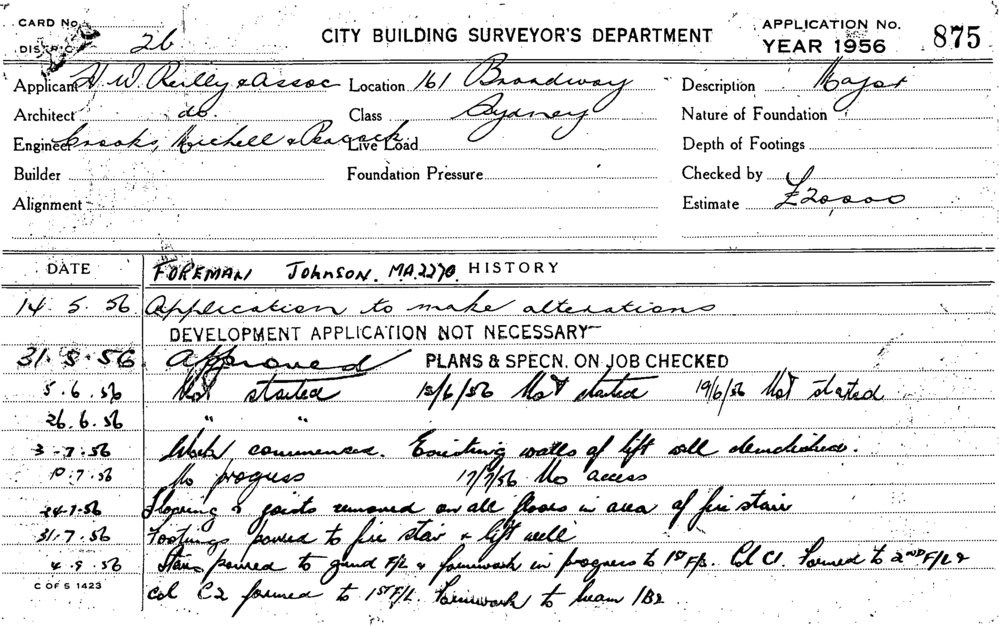 CARD No.
DISTRICT 26 CITY BUILDING SURVEYOR'S DEPARTMENT APPLICATION No. YEAR 1956 875
Applicant H. W. Reilly & Assoc Location 161 Broadway Description Major
Architect do. Class Sydney Nature of Foundation
Engineer Crooks, Michell & Peacock Live Load Depth of Footings
Builder Foundation Pressure Checked by
Alignment Estimate £20,000
DATE FOREMAN JOHNSON. MA.2270. HISTORY
14. 5. 56 Application to make alterations
DEVELOPMENT APPLICATION NOT NECESSARY
31. 5. 56 Approved PLANS & SPECN. ON JOB CHECKED
5. 6. 56 Not started 12/6/56 Not started 19/6/56 Not started
26. 6. 56 " "
3-7.56 Work commenced. Existing walls of lift well demolished.
10.7.56 No progress 17/7/56 No access
24.7.56 Flooring & joists removed on all floors in area of fire stair
31.7.56 Footings poured to fire stair & lift well
Stair poured to grnd F/L & formwork in progress to 1ST F/L. Col C1. Formed to 2ND F/L &
C OF S 1423
Col C2 formed to 1ST F/L. Formwork to beam 1B2